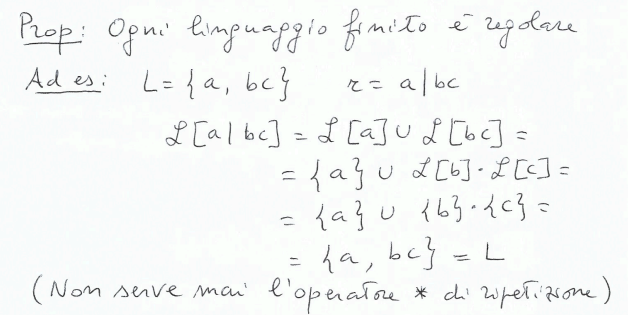 Prop: Ogni linguaggio finito è regolare
Ad es: L = {a, bc} r = a|bc
ℒ[a|bc] = ℒ[a] ∪ ℒ[bc] =
= {a} ∪ ℒ[b]·ℒ[c] =
= {a} ∪ {b}·{c} =
= {a, bc} = L
(Non serve mai l'operatore * di ripetizione)